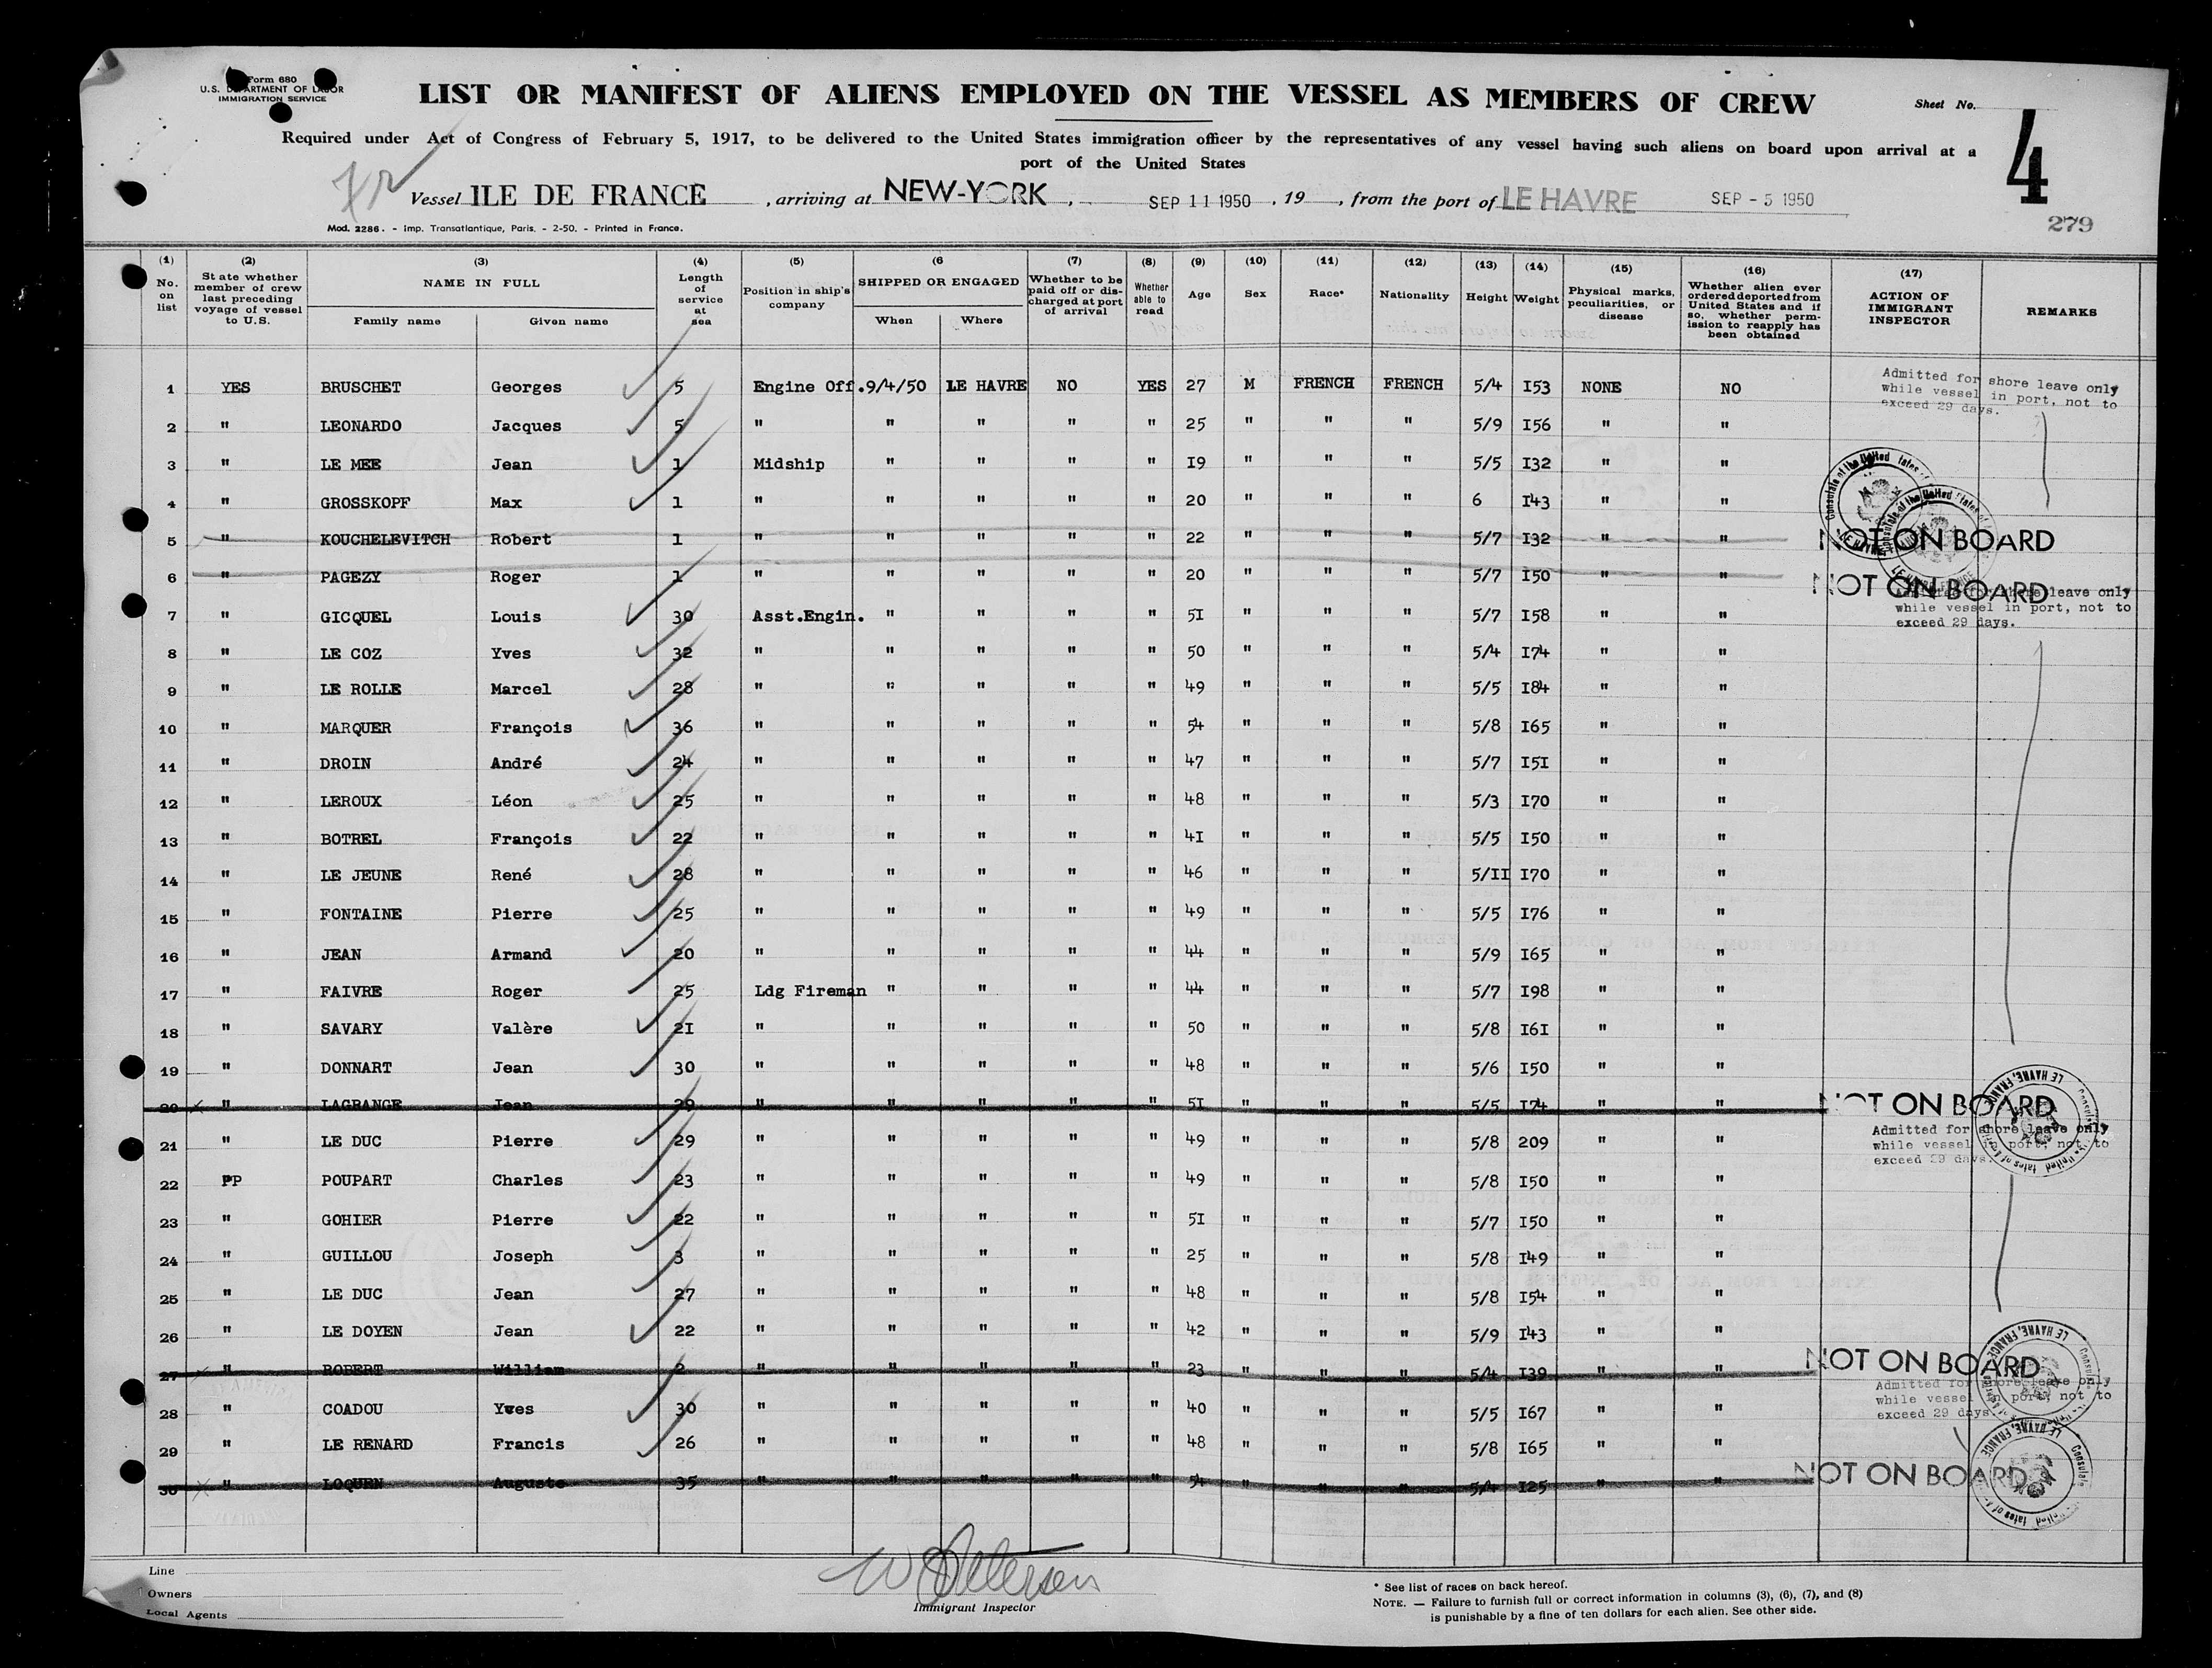 Form 680
U.S. DEPARTMENT OF LABOR
IMMIGRATION SERVICE
LIST OR MANIFEST OF ALIENS EMPLOYED ON THE VESSEL AS MEMBERS OF CREW
Sheet No.
4
Required under Act of Congress of February 5, 1917, to be delivered to the United States immigration officer by the representatives of any vessel having such aliens on board upon arrival at a
port of the United States
Vessel ILE DE FRANCE, arriving at NEW-YORK, SEP 11 1950, 19, from the port of LE HAVRE SEP - 5 1950
279
Mod. 2286. - Imp. Transatlantique, Paris. - 2-50. - Printed in France.
(1) No. on list (2) State whether member of crew last preceding voyage of vessel to U.S. (3) NAME IN FULL Family name Given name (4) Length of service at sea (5) Position in ship's company (6 SHIPPED OR ENGAGED When Where (7) Whether to be paid off or discharged at port of arrival (8) Whether able to read (9) Age (10) Sex (11) Race* (12) Nationality (13) Height (14) Weight (15) Physical marks, peculiarities, or disease (16) Whether alien ever ordered deported from United States and if so, whether permission to reapply has been obtained (17) ACTION OF IMMIGRANT INSPECTOR REMARKS
1 YES BRUSCHET Georges 5 Engine Off. 9/4/50 LE HAVRE NO YES 27 M FRENCH FRENCH 5/4 I53 NONE NO Admitted for shore leave only while vessel in port, not to exceed 29 days.
2 " LEONARDO Jacques 5 " " " " " 25 " " " 5/9 I56 " "
3 " LE MEE Jean 1 Midship " " " " I9 " " " 5/5 I32 " "
4 " GROSSKOPF Max 1 " " " " " 20 " " " 6 I43 " "
5 " KOUCHELEVITCH Robert 1 " " " " " 22 " " " 5/7 I32 " " NOT ON BOARD
6 " PAGEZY Roger 1 " " " " " 20 " " " 5/7 I50 " " NOT ON BOARD
7 " GICQUEL Louis 30 Asst.Engin. " " " " 5I " " " 5/7 I58 " " Admitted for shore leave only while vessel in port, not to exceed 29 days.
8 " LE COZ Yves 32 " " " " " 50 " " " 5/4 I74 " "
9 " LE ROLLE Marcel 28 " " " " " 49 " " " 5/5 I84 " "
10 " MARQUER François 36 " " " " " 54 " " " 5/8 I65 " "
11 " DROIN André 24 " " " " " 47 " " " 5/7 I5I " "
12 " LEROUX Léon 25 " " " " " 48 " " " 5/3 I70 " "
13 " BOTREL François 22 " " " " " 4I " " " 5/5 I50 " "
14 " LE JEUNE René 28 " " " " " 46 " " " 5/II I70 " "
15 " FONTAINE Pierre 25 " " " " " 49 " " " 5/5 I76 " "
16 " JEAN Armand 20 " " " " " 44 " " " 5/9 I65 " "
17 " FAIVRE Roger 25 Ldg Fireman " " " " 44 " " " 5/7 I98 " "
18 " SAVARY Valère 2I " " " " " 50 " " " 5/8 I6I " "
19 " DONNART Jean 30 " " " " " 48 " " " 5/6 I50 " "
20 " LAGRANGE Jean 29 " " " " " 5I " " " 5/5 I74 " " NOT ON BOARD
21 " LE DUC Pierre 29 " " " " " 49 " " " 5/8 209 " " Admitted for shore leave only while vessel in port, not to exceed 29 days.
22 PP POUPART Charles 23 " " " " " 49 " " " 5/8 I50 " "
23 " GOHIER Pierre 22 " " " " " 5I " " " 5/7 I50 " "
24 " GUILLOU Joseph 3 " " " " " 25 " " " 5/8 I49 " "
25 " LE DUC Jean 27 " " " " " 48 " " " 5/8 I54 " "
26 " LE DOYEN Jean 22 " " " " " 42 " " " 5/9 I43 " "
27 " ROBERT William 2 " " " " " 23 " " " 5/4 I39 " " NOT ON BOARD
28 " COADOU Yves 30 " " " " " 40 " " " 5/5 I67 " " Admitted for shore leave only while vessel in port, not to exceed 29 days.
29 " LE RENARD Francis 26 " " " " " 48 " " " 5/8 I65 " "
30 " LOQUEN Auguste 35 " " " " " 54 " " " 5/4 I25 " " NOT ON BOARD
Line
Owners
Local Agents
Immigrant Inspector
* See list of races on back hereof.
NOTE. — Failure to furnish full or correct information in columns (3), (6), (7), and (8)
is punishable by a fine of ten dollars for each alien. See other side.